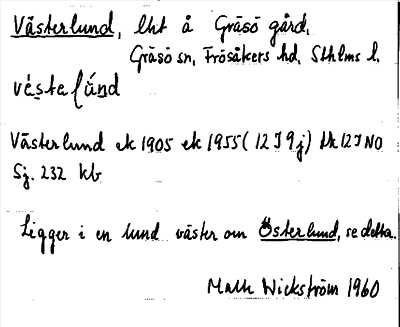 Västerlund, lht å Gräsö gård,
Gräsö sn, Frösåkers hd, Sthlms l.
vèstaḷúnd
Västerlund ek 1905 ek 1955 (12 J 9 j) tk 12 J NO
Sj. 232 kb
Ligger i en lund väster om Österlund, se detta.
Math Wickström 1960